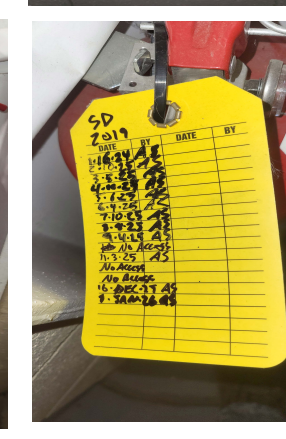 SD
2019
DATE BY DATE BY
1.16.24 AS
2.10.25 AS
3.5.25 AS
4.10.25 AS
5.6.25 AS
6.4.25 AS
7.10.25 AS
8.8.25 AS
9.4.25 AS
No Access
11.3.25 AS
No Access
No Access
16.DEC.25 AS
8.JAN 26 AS